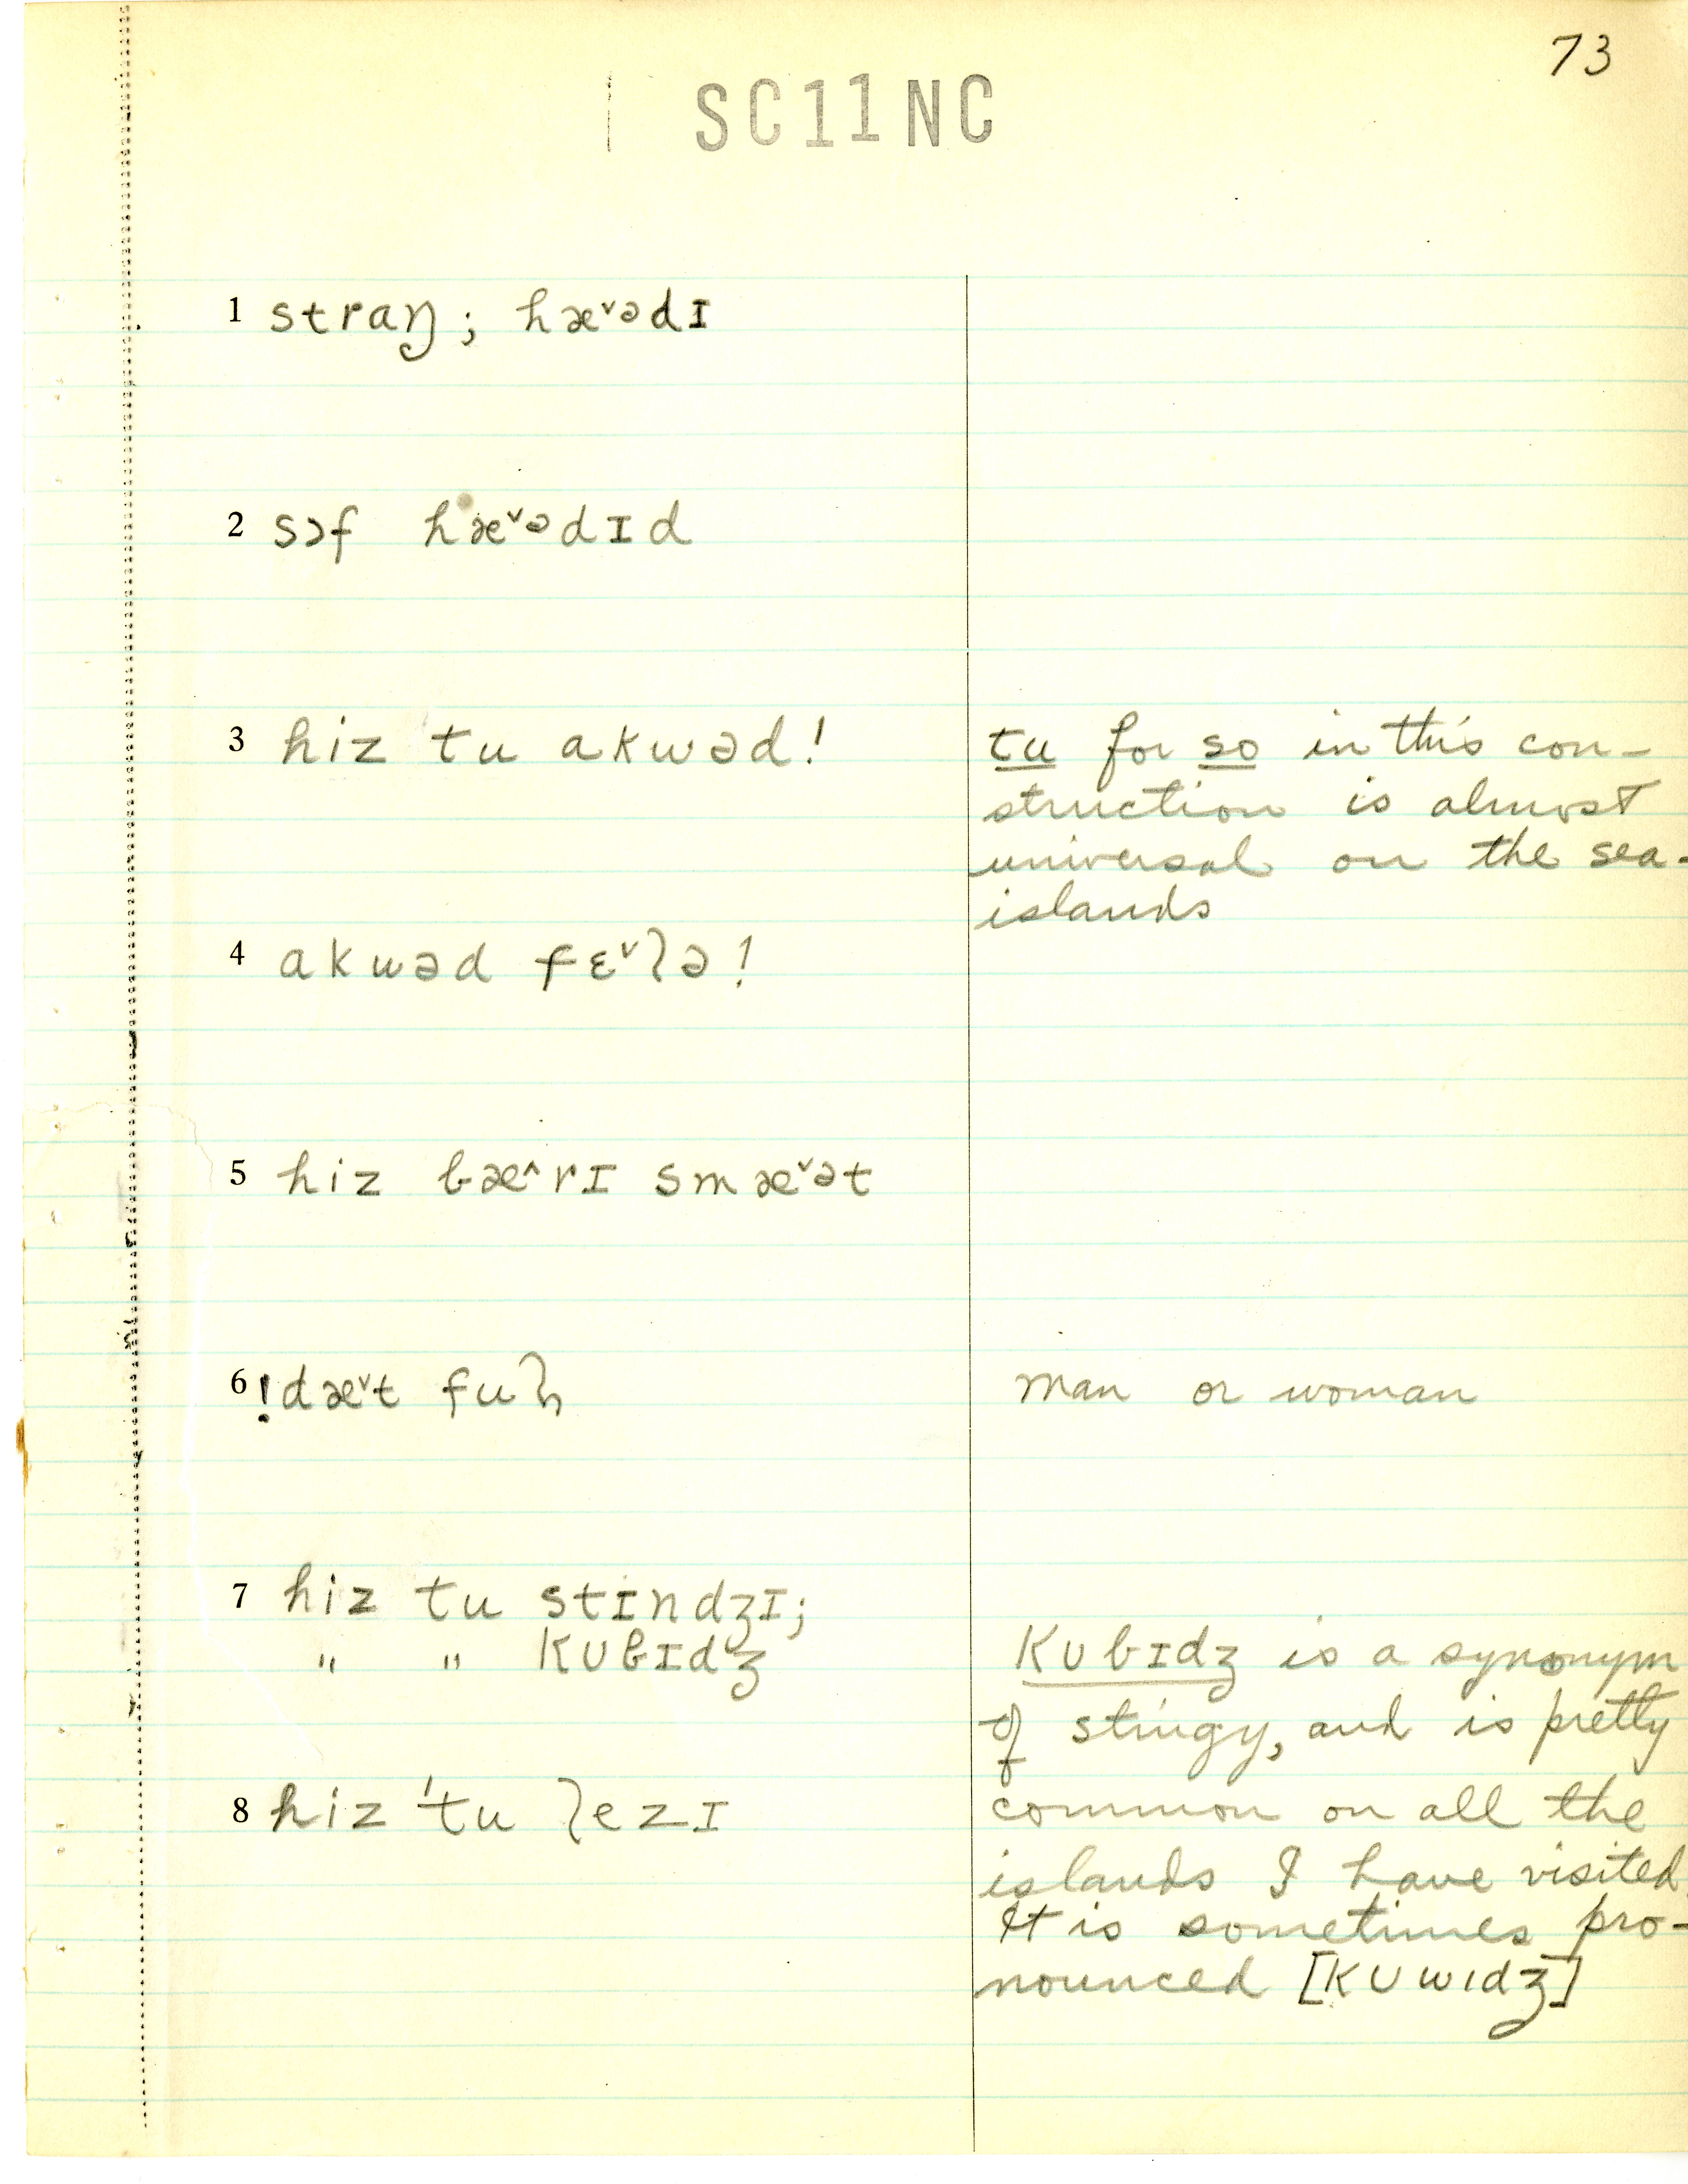 73
SC11NC
1 straŋ; hæ˅ədɪ
2 sɔf hæ˅ədɪd
3 hiz tu akwəd!
tu for so in this con-
struction is almost
universal on the sea-
islands
4 akwəd fɛ˅lə!
5 hiz ɓæ˄rɪ smæ˅ət
6 !dæ˅t ful
man or woman
7 hiz tu stɪndʒɪ;
" " kʊɓɪdʒ
8 hiz 'tu lezɪ
kʊɓɪdʒ is a synonym
of stingy, and is pretty
common on all the
islands I have visited.
It is sometimes pro-
nounced [kʊwɪdʒ]